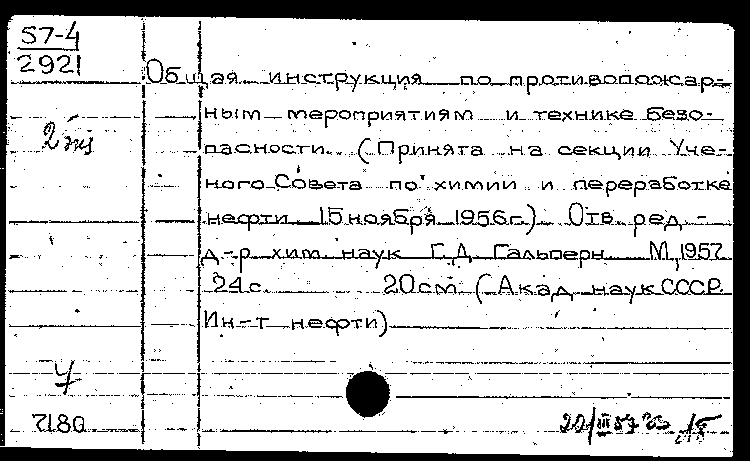 57-4
2921
Общая инструкция по противопожар-
ным мероприятиям и технике безо-
2 экз
пасности. (Принята на секции Уче-
ного Совета по химии и переработке
нефти 15 ноября 1956г.) Отв. ред. -
д-р хим. наук Г.Д. Гальперн. М, 1957.
24с. 20см. (Акад. наук СССР.
Ин-т нефти)
У
7180